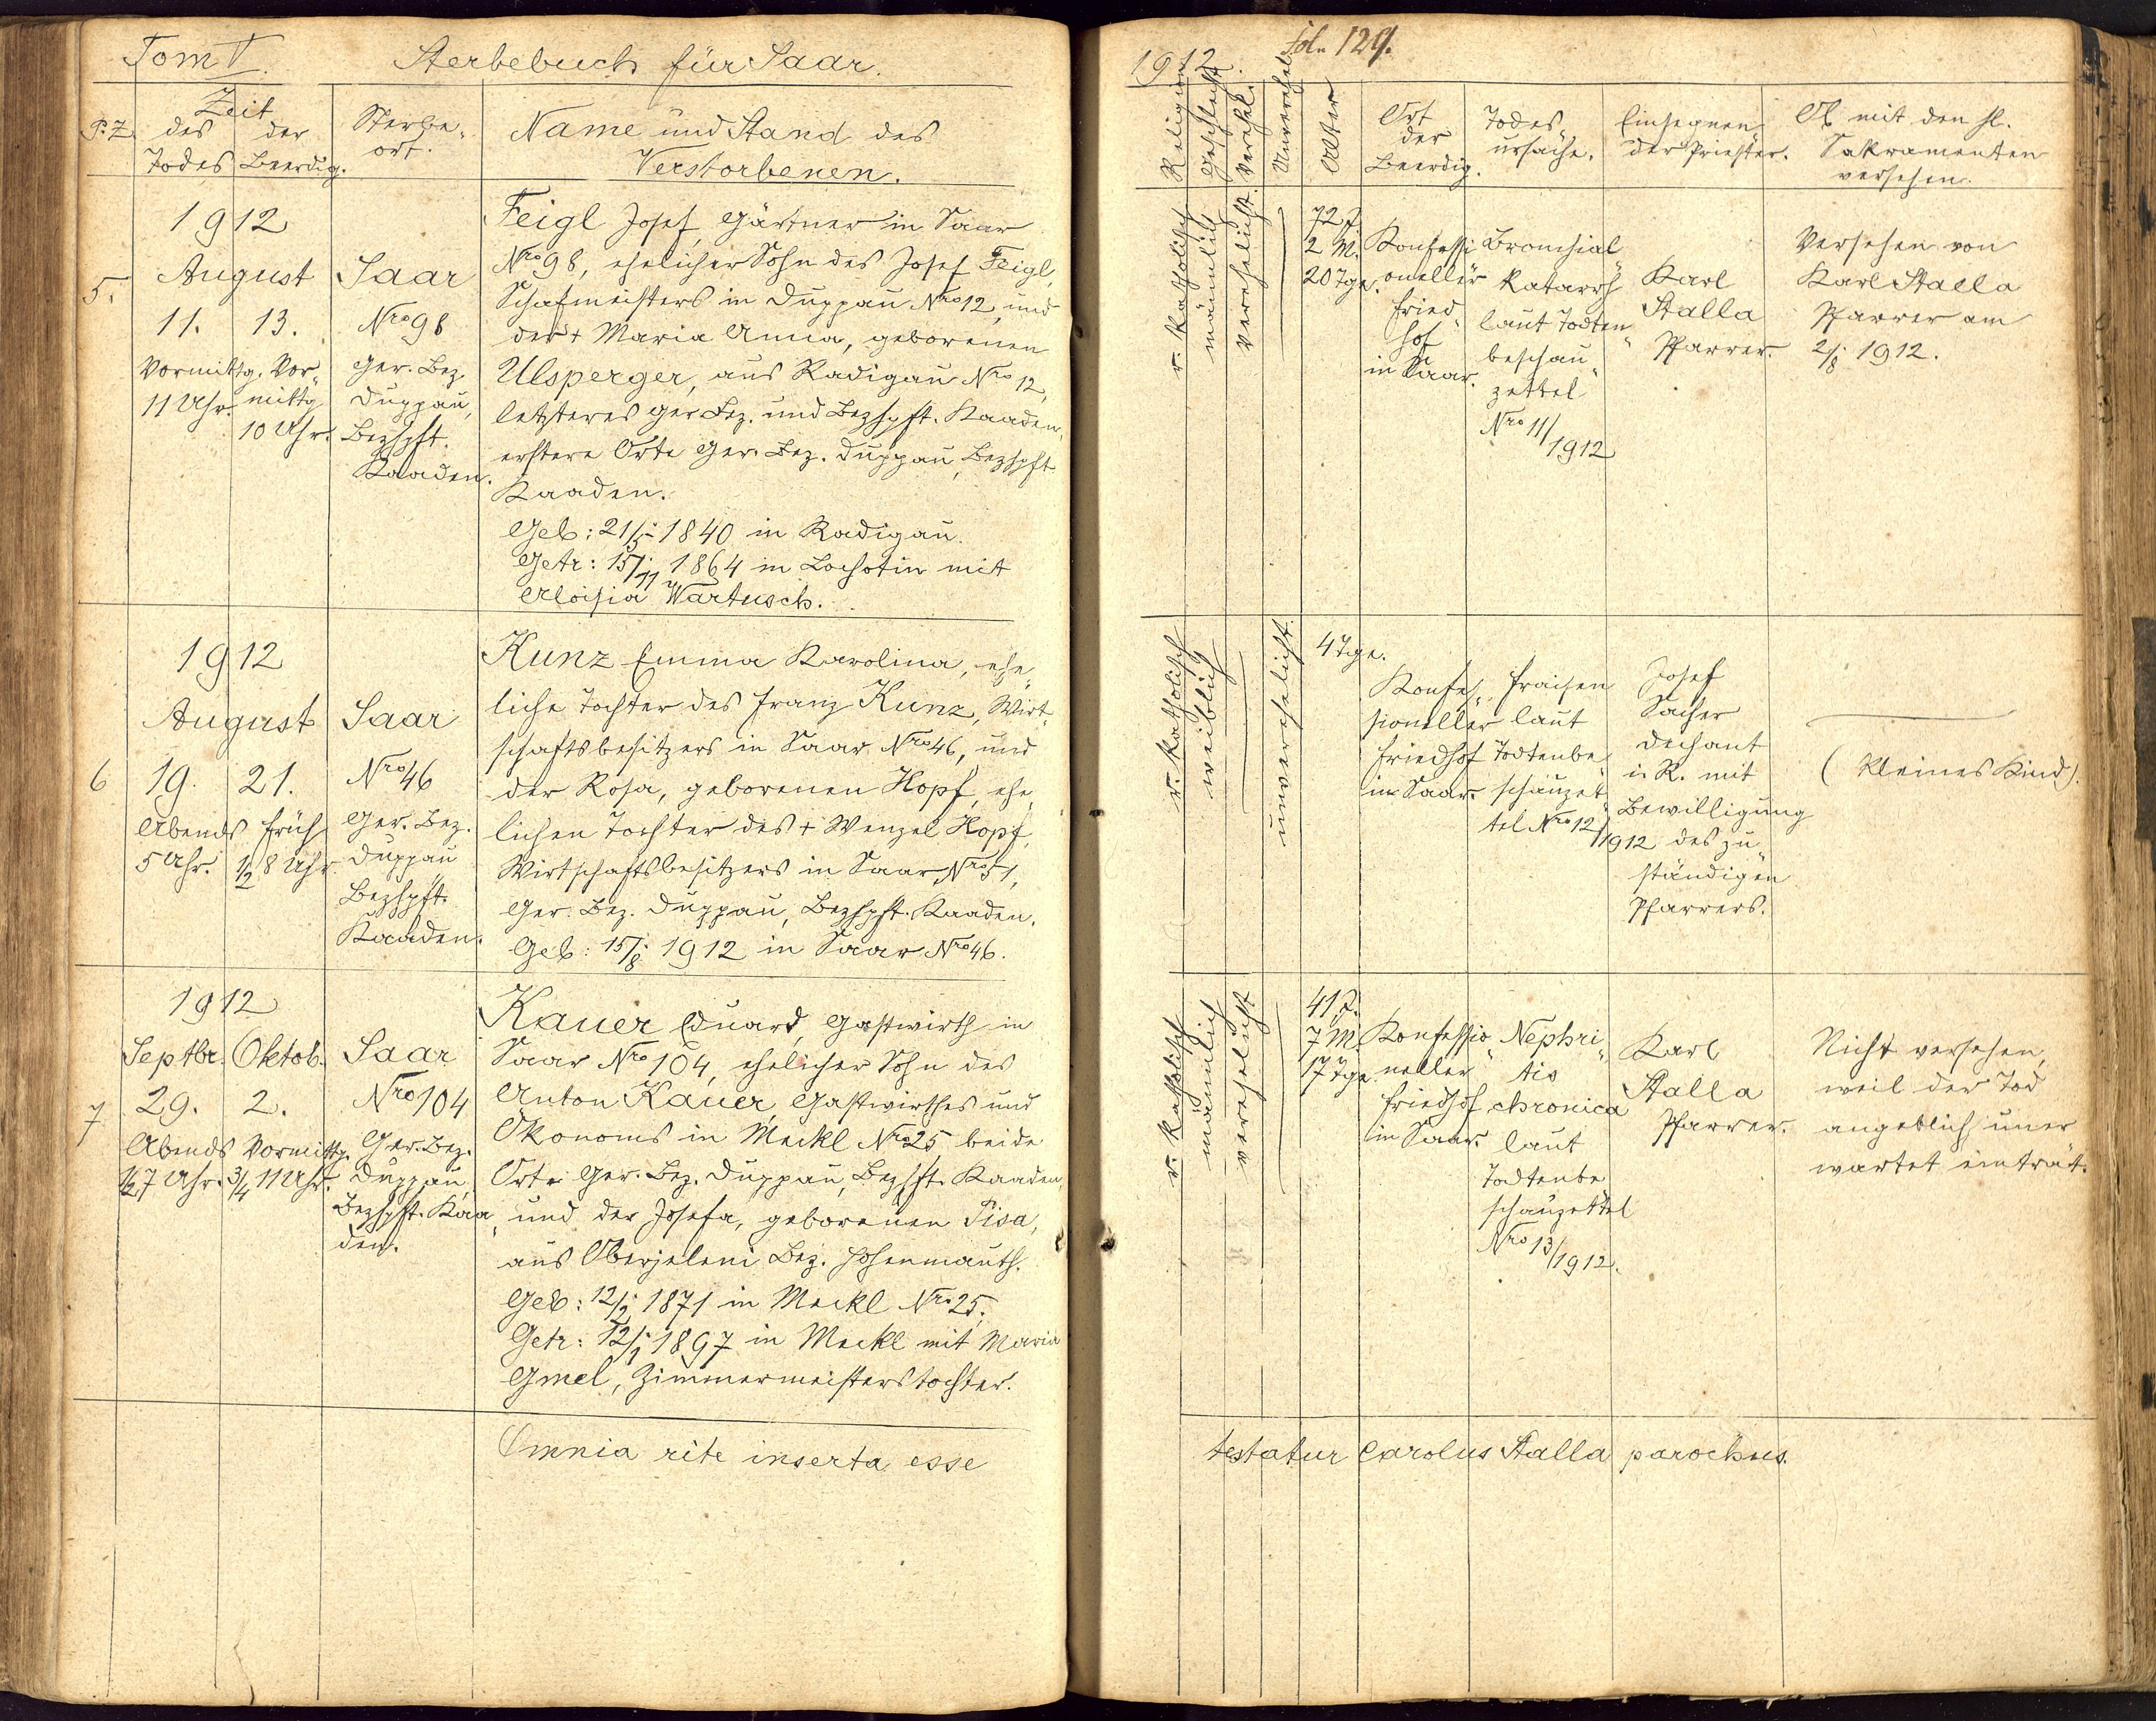 Tom V.
Sterbebuch für Saar.
P. Z.
Zeit
des
Todes
der
Beerdig.
Sterbe-
ort.
Name und Stand des
Verstorbenen.
5.
1912
August
11.
Vormittg.
11 Uhr.
13.
Vor-
mittg
10 Uhr.
Saar
Nro 98
Ger. Bez.
Duppau,
Bezhpft.
Kaaden.
Feigl Josef, Gärtner in Saar
Nro 98, ehelicher Sohn des Josef Feigl,
Schafmeisters in Duppau Nro 12, und
der + Maria Anna, geborenen
Ulsperger, aus Radigau Nro 12,
letzteres Ger. Bez. und Bezhpft. Kaaden,
erstere Orte Ger. Bez. Duppau, Bezhpft
Kaaden.
Geb: 21/5. 1840 in Radigau.
Getr: 15/11. 1864 in Lochotin mit
Aloisia Wartusch.
6
1912
August
19.
Abends
5 Uhr.
21.
früh
1/2 8 Uhr
Saar
Nro 46
Ger. Bez.
Duppau
Bezhpft.
Kaaden.
Kunz Emma Karolina, ehe-
liche Tochter des Franz Kunz, Wirt-
schaftsbesitzers in Saar Nro 46, und
der Rosa, geborenen Hopf, ehe-
lichen Tochter des + Wenzel Hopf,
Wirtschaftsbesitzers in Saar Nro 51,
Ger. Bez. Duppau, Bezhpft. Kaaden.
Geb: 15/8. 1912 in Saar Nro 46.
7
1912
Septbr.
29.
Abends
1/2 7 Uhr.
Oktob.
2.
Vormittg.
3/4 11 Uhr.
Saar
Nro 104
Ger. Bez.
Duppau,
Bezhpft. Kaa-
den.
Kauer Eduard, Gastwirth in
Saar Nro 104, ehelicher Sohn des
Anton Kauer, Gastwirthes und
Ökonoms in Meckl Nro 25 beide
Orte Ger. Bez. Duppau, Bezhft. Kaaden,
und der Josefa, geborenen Pisa,
aus Oberjeleni Bez. Hohenmauth.
Geb: 12/2. 1871 in Meckl Nro 25.
Getr: 12/1. 1897 in Meckl mit Maria
Gmel, Zimmermeisterstochter.
Omnia rite inserta esse
1912.
Fol. 129.
Religion
Geschlecht
Verehel.
Unverehel.
Alter
Ort
der
Beerdig.
Todes-
ursache.
Einsegnen-
der Priester.
Ob mit den hl.
Sakramenten
versehen.
r. katholisch
männlich
verehelicht.
72 J.
2 M.
20 Tge.
Konfessi-
oneller
Fried-
hof
in Saar.
Bronchial-
katarrh
laut Todten-
beschau-
zettel
Nro 11/1912
Karl
Stalla
Pfarrer.
Versehen von
Karl Stalla
Pfarrer am
2/8. 1912.
r. katholisch
weiblich
unverehelicht.
4 Tge.
Konfes-
sioneller
Friedhof
in Saar.
Fraisen
laut
Todtenbe-
schauzet-
tel Nro 12/1912
Josef
Sacher
Dechant
i. R. mit
Bewilligung
des zu-
ständigen
Pfarrers.
(Kleines Kind).
r. katholisch
männlich
verehelicht
41 J.
7 M.
17 Tge.
Konfessio-
neller
Friedhof
in Saar.
Nephri-
tis
chronica
laut
Todtenbe-
schauzettel
Nro 13/1912.
Karl
Stalla
Pfarrer.
Nicht versehen,
weil der Tod
angeblich uner-
wartet eintrat.
testatur Carolus Stalla parochus.